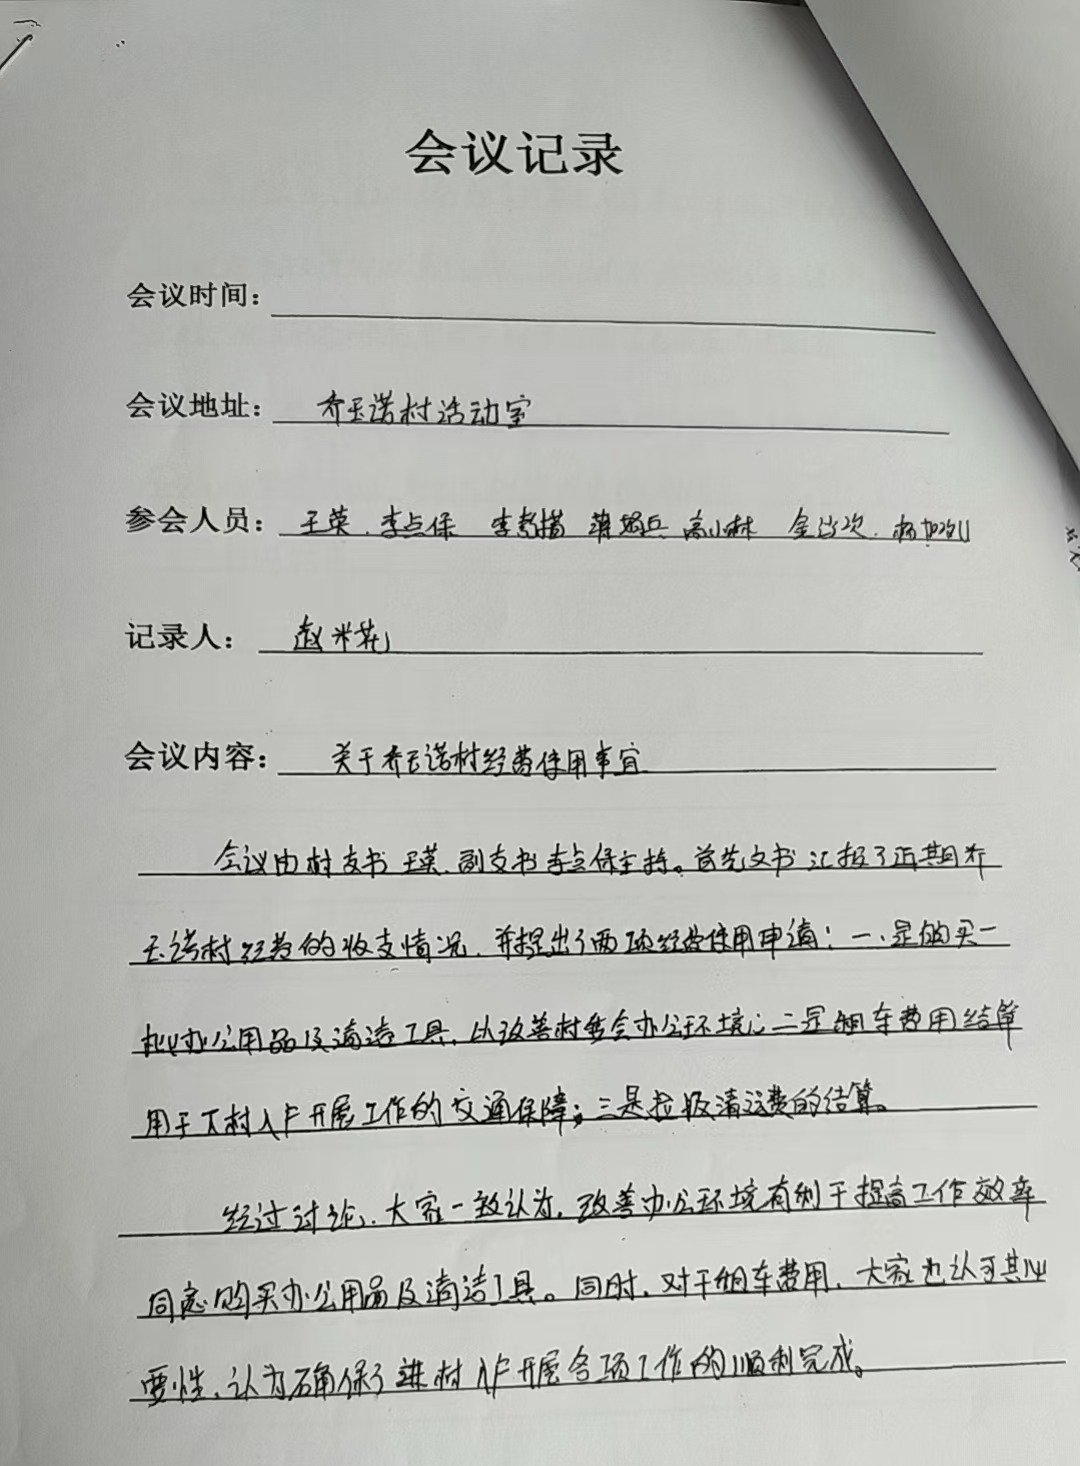 会议记录
会议时间：
会议地址：齐玉诺村活动室
参会人员：王荣、李点保 李 高小林 金 次、杨
记录人：赵米花
会议内容：关于齐玉诺村经费使用事宜
会议由村支书王英、副支书李点保主持。首先文书汇报了近期齐
玉诺村经费的收支情况，并提出了两项经费使用申请：一、是购买一
批办公用品及清洁工具，以改善村委会办公环境；二是租车费用结算
用于下村入户开展工作的交通保障；三是垃圾清运费的结算。
经过讨论，大家一致认为，改善办公环境有利于提高工作效率
同意购买办公用品及清洁工具。同时，对于租车费用，大家也认可其必
要性，认为确保了进村入户开展各项工作的顺利完成。